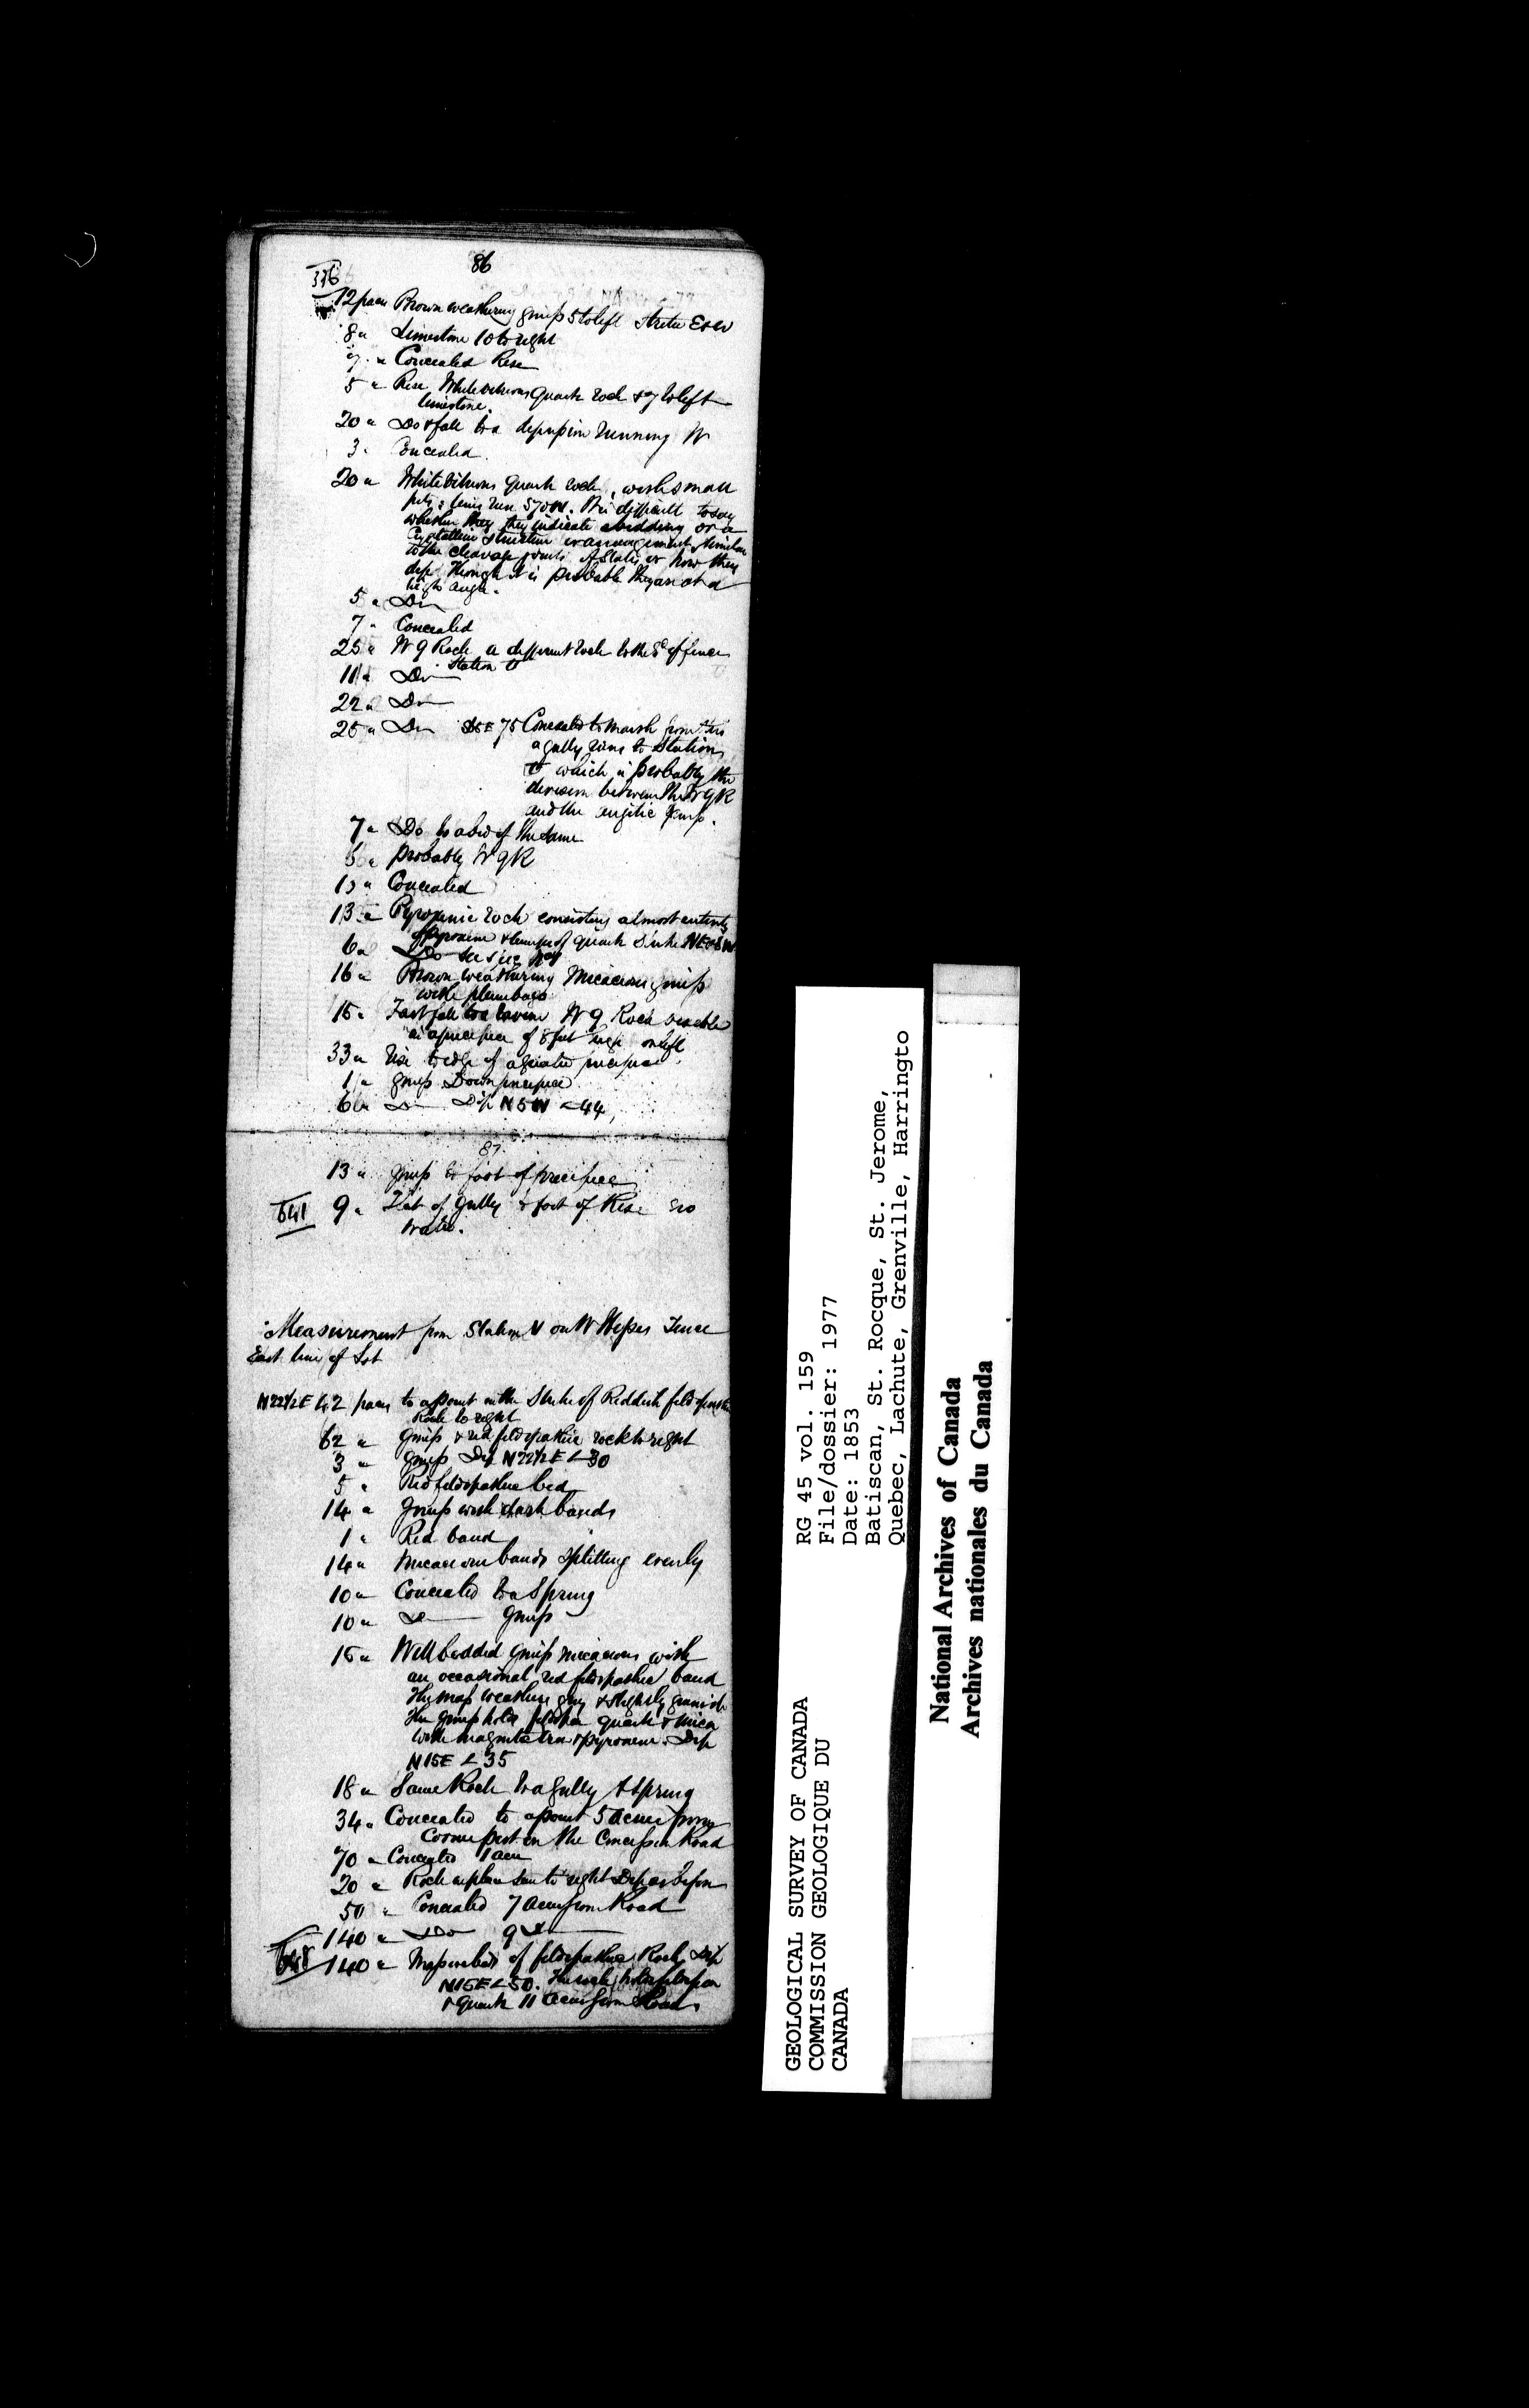 86
12 paces Brown weathering gneiss 5 to left Strike E & W
8 " Limestone 10 to right
7 " Concealed Rise
5 " Rise White vitreous Quartz rock & 7 to left
limestone.
20 " Do & fall to a depression running W
3 " Concealed.
20 " White vitreous Quartz rock, with small
pits & lines run S70W. It is difficult to say
whether they indicate a bedding or a
Crystalline structure or arrangement similar
to the cleavage joints of Slates or how they
dip though it is probable they are at a
high angle.
5 " Do
7 " Concealed
25 " W q Rock a different rock to the Sd of fence
Station U
11 " Do
22 " Do
25 " Do S5E 75 Concealed to marsh from this
a gully runs to Station
U which is probably the
division between the W q R
and the augitic gneiss.
7 " Do to a bed of the same
5 " probably W q R
15 " Concealed
13 " Pyroxenic rock consisting almost entirely
of pyroxene & lumps of quartz Strike NE & SW
6 " Do
16 " Brown weathering Micaceous gneiss
with plumbago
15 " Fast fall to a ravine W q Rock visible
in a precipice of 8 feet high on left
33 " Rise to edge of a greater precipice
1 " gneiss Down precipice
6 " Do Dip N5W <44
87
13 " gneiss to foot of precipice
641 9 " Flat of gully & foot of Rise no
water.
Measurement from Station V on W Fence
East line of Lot
N22½E 42 paces to a point in the Strike of Reddish feldspathic
Rock to right
62 " gneiss & red feldspathic rock to right
3 " gneiss Dip N22½E <30
5 " Red feldspathic bed
14 " gneiss with dark bands
1 " Red band
14 " Micaceous bands splitting evenly
10 " Concealed to a Spring
10 " Do gneiss
15 " Well bedded gneiss micaceous with
an occasional red feldspathic band
The mass weathers grey & slightly greenish
The gneiss holds feldspar quartz & mica
with magnetic iron & pyroxene. Dip
N15E < 35
18 " Same Rock to a gully & spring
34 " Concealed to a point 5 acres from
Corner post on the Concession Road
70 " Concealed 1 acre
20 " Rock in place seen to right Dip as before
50 " Concealed 7 acres from Road
140 " Do 9 Do
140 " Massive beds of feldspathic Rock Dip
N15E < 50. The rock holds feldspar
& quartz 11 acres from Road.
GEOLOGICAL SURVEY OF CANADA
COMMISSION GEOLOGIQUE DU
CANADA
RG 45 vol. 159
File/dossier: 1977
Date: 1853
Batiscan, St. Rocque, St. Jerome,
Quebec, Lachute, Grenville, Harringto
National Archives of Canada
Archives nationales du Canada